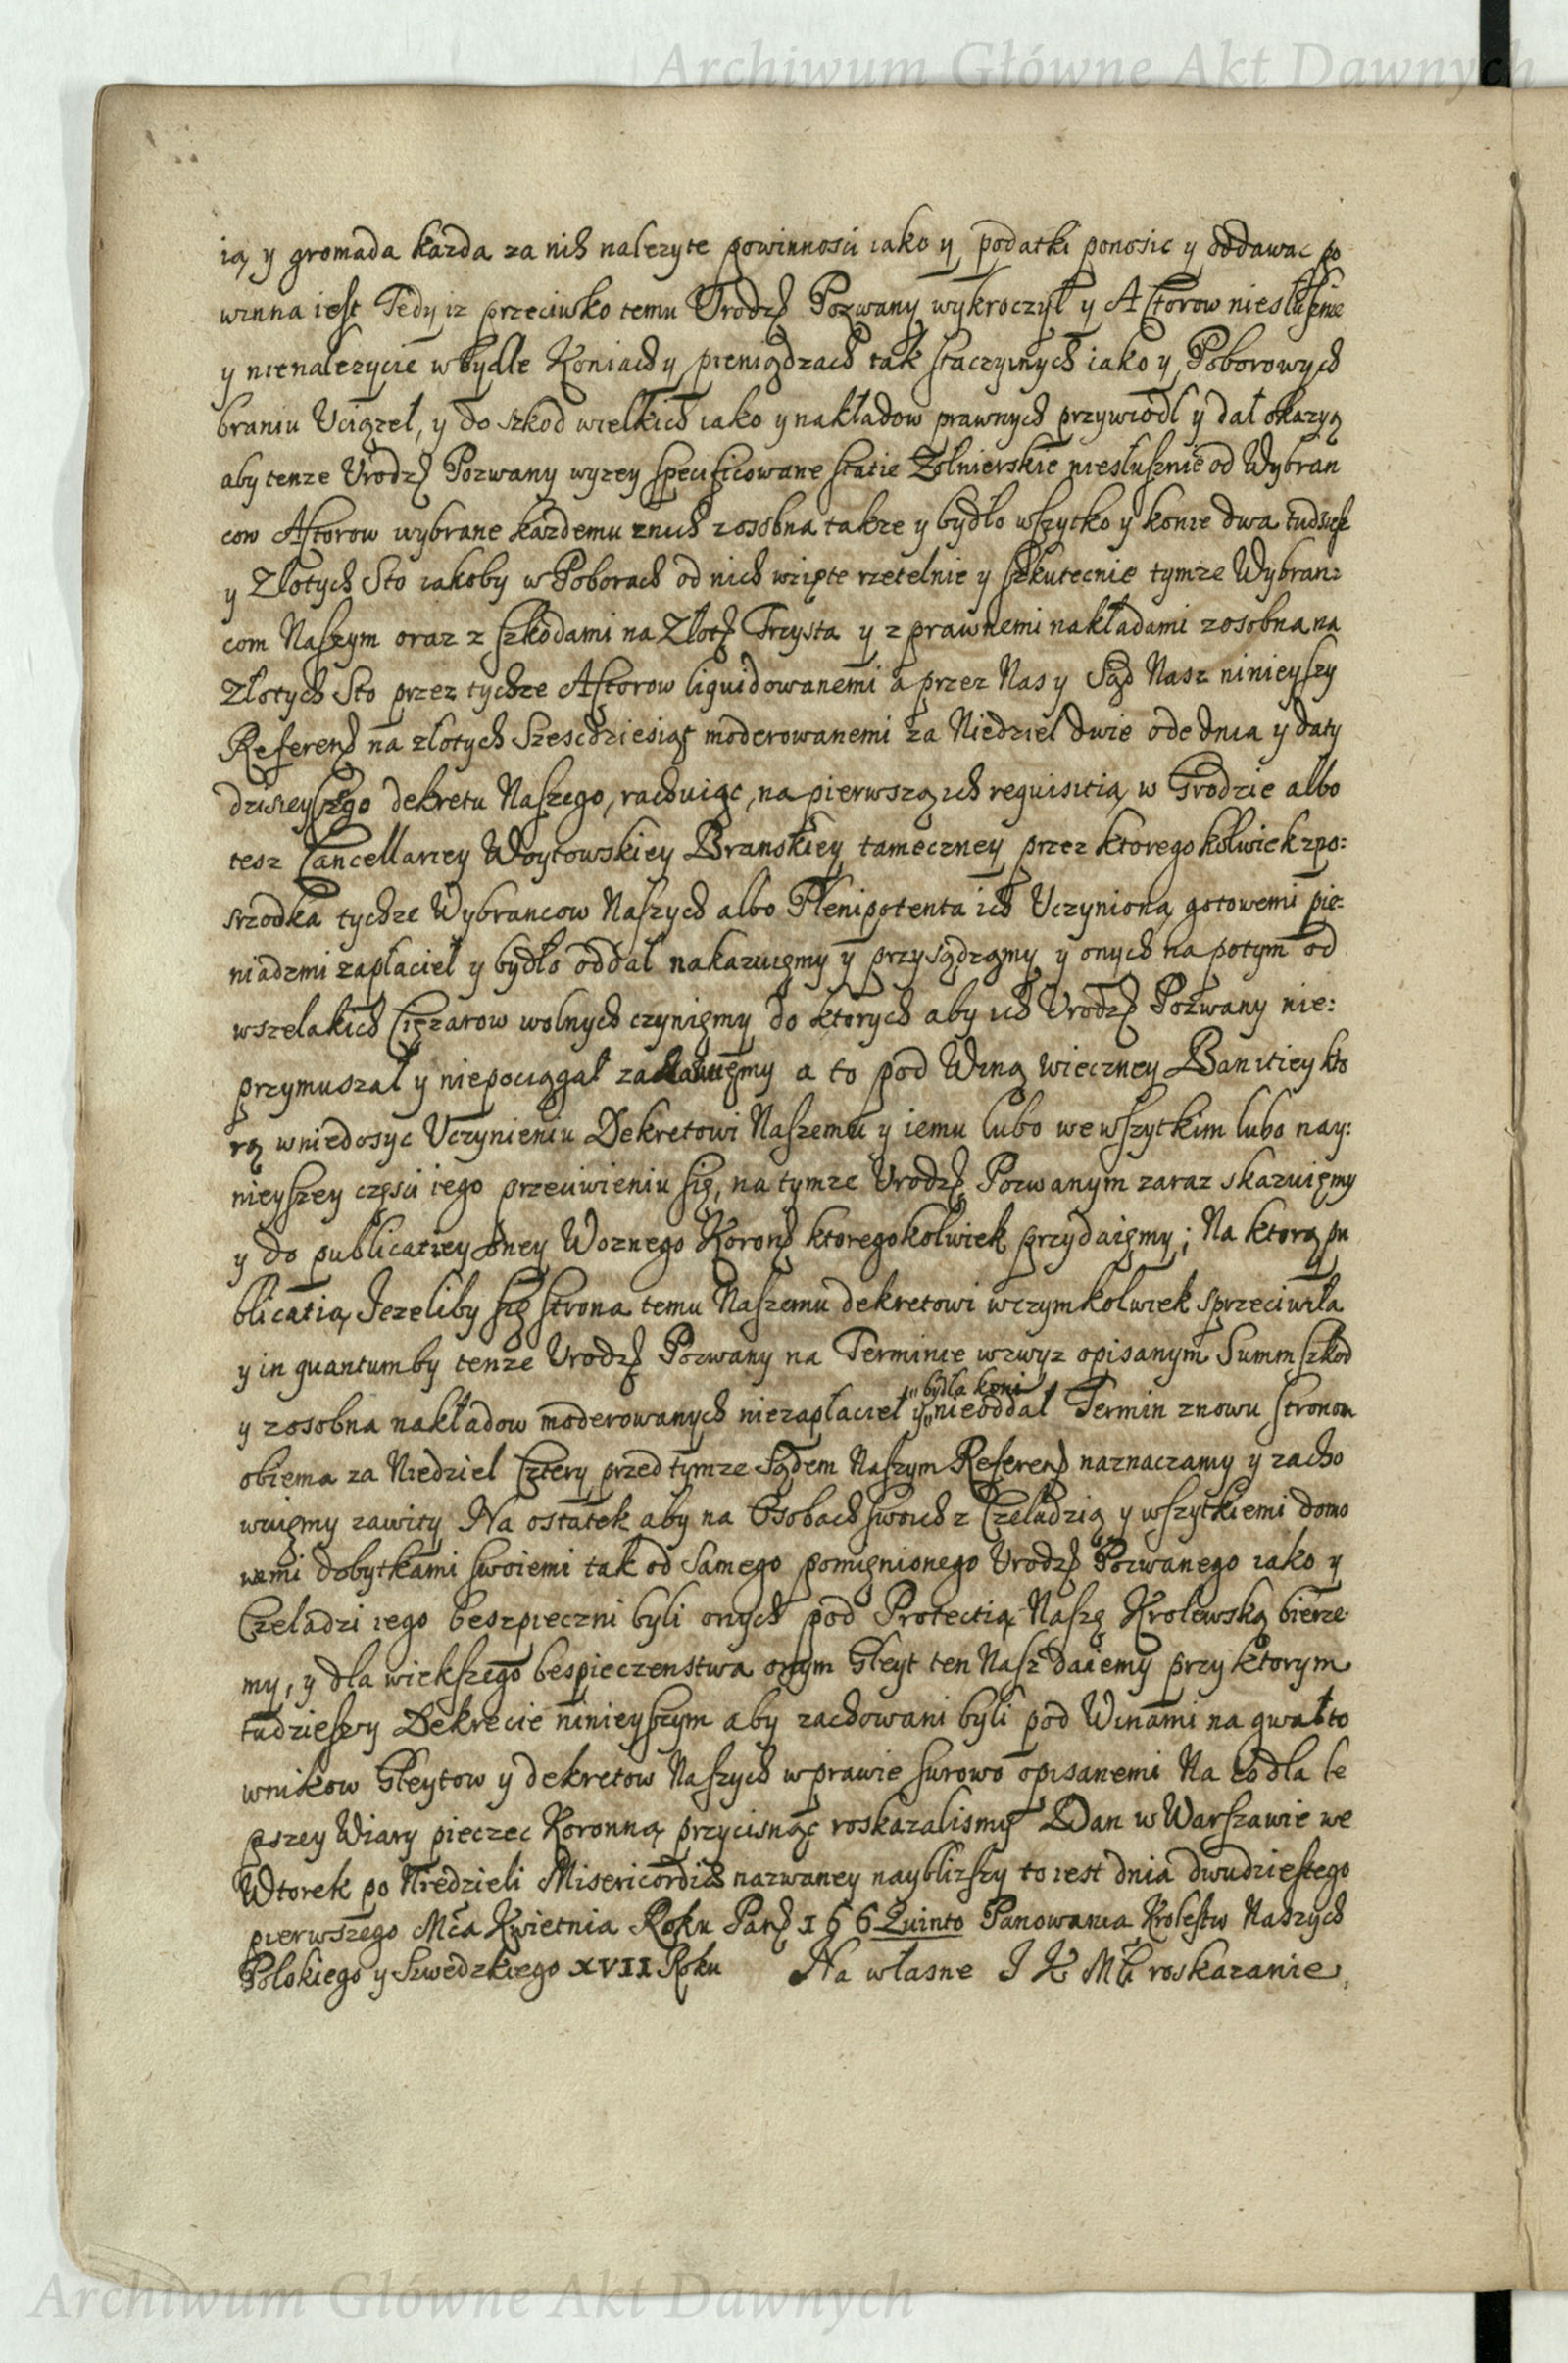 Archiwum Główne Akt Dawnych
ią y gromada kazda za nich nalezyte powinnosci iako y podatki ponosic y oddawac po
winna iest Tedy iz przeciwko temu Urodz Pozwany wykroczył y Actorow niesłusznie
y nienalezycie w bydle Koniach y pieniądzach tak staczyinych iako y Poborowych
braniu Uciązeł, y do szkod wielkich iako y nakładow prawnych przywiodł y dał okazyą
aby tenze Urodz Pozwany wyzey specificowane statie Zołnierskie niesłusznie od Wybran
cow Actorow wybrane kazdemu znich zosobna takze y bydło wszytko y konie dwa tudziesz
y Złotych Sto iakoby w Poborach od nich wzięte rzetelnie y szkutecnie tymze Wybran:
com Naszym oraz z szkodami na Złotͩ Trzysta y z prawnemi nakładami zosobna na
Złotych Sto przez tychze Actorow liquidowanemi a przez Nas y Sąd Nasz ninieyszy
Referend na złotych Szescdziesiąt moderowanemi za Niedziel dwie ode dnia y daty
dzisieyszego dekretu Naszego, rachuiąc, na pierwszą ich requisitią w Grodzie albo
tesz Cancellariey Woytowskiey Branskiey tameczney przez ktoregokolwiek zpo:
srzodka tychze Wybrancow Naszych albo Plenipotenta ich Uczynioną gotowemi pie:
niadzmi zapłacieł y bydło oddał nakazuięmy y przysądzamy y onych na potym od
wszelakich Cięzarow wolnych czynięmy do ktorych aby ich Urodz Pozwany nie:
przymuszał y niepociągał zachowuięmy a to pod Winą wieczney Banitiey kto
rą wniedosyc Uczynieniu Dekretowi Naszemu y iemu lubo we wszytkim lubo nay:
nieyszey częsci iego przeciwieniu się, na tymze Urodz Pozwanym zaraz skazuięmy
y do publicatiey oney Woznego Koron ktoregokolwiek przydaięmy; Na ktorą pu
blicatią Jezeliby się strona temu Naszemu dekretowi wczymkolwiek sprzeciwiła
y in quantumby tenze Urodz Pozwany na Terminie wzwyz opisanym Summ szkod
y zosobna nakładow moderowanych niezapłacieł y bydła koni nieoddał Termin znowu stronom
obiema za Niedziel Cztery przed tymze Sądem Naszym Referend naznaczamy y zacho
wuięmy zawity Na ostatek aby na Osobach swoich z Czeladzią y wszytkiemi domo
wemi dobytkami swoiemi tak od samego pomięnionego Urodz Pozwanego iako y
Czeladzi iego beszpieczni byli onych pod Protectią Naszę Krolewską bierze
my, y dla wiekszego bespieczenstwa onym Gleyt ten Nasz daiemy przy ktorym
tudzieszy Dekrecie ninieyszym aby zachowani byli pod Winami na gwałto
wnikow Gleytow y dekretow Naszych w prawie surowo opisanemi Na co dla le
pszey Wiary pieczec Koronną przycisnąc roskazalismy Dan w Warszawie we
Wtorek po Niedzieli Misericordiae nazwaney nayblizszy to iest dnia dwudziestego
pierwszego Mca Kwietnia Roku Pan 166 Quinto Panowania Krolestw Naszych
Polskiego y Szwedzkiego XVII Roku Na własne J K Mci roskazanie
Archiwum Główne Akt Dawnych